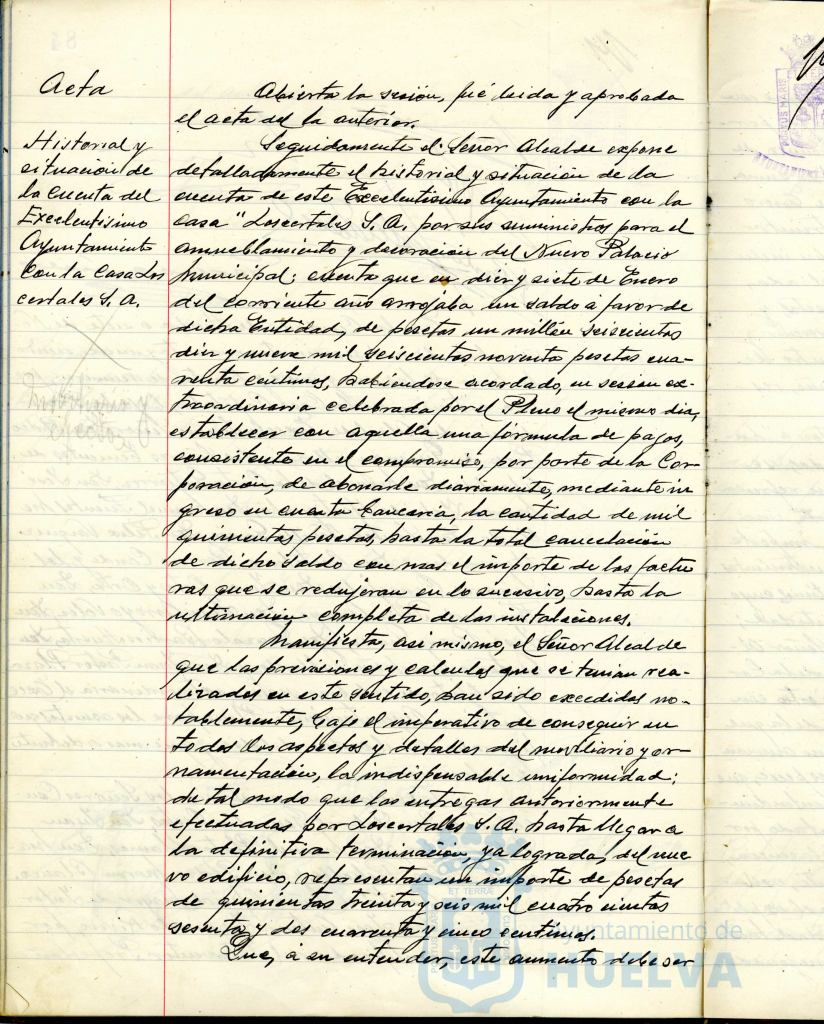 Acta
Historial y
situación de
la cuenta del
Excelentísimo
Ayuntamiento
con la Casa Los
certales S.A.
Abierta la sesión, fué leida y aprobada
el acta del la anterior.
Seguidamente el Señor Alcalde expone
detalladamente el historial y situación de la
cuenta de este Excelentísimo Ayuntamiento con la
casa "Loscertales S.A. por sus suministros para el
amueblamiento y decoración del Nuevo Palacio
Municipal; cuenta que en diez y siete de Enero
del corriente año arrojaba un saldo á favor de
dicha Entidad, de pesetas un millón seiscientas
diez y nueve mil seiscientas noventa pesetas cua-
renta céntimos, habiendose acordado, en sesion ex-
traordinaria celebrada por el Pleno el mismo dia,
establecer con aquella una fórmula de pagos,
consistente en el compromiso, por parte de la Cor-
poración, de abonarle diariamente, mediante in
greso en cuenta bancaria, la cantidad de mil
quinientas pesetas, hasta la total cancelación
de dicho saldo con mas el importe de las factu
ras que se redujeran en lo sucesivo, hasta la
ultimación completa de las instalaciones.
Manifiesta, asi mismo, el Señor Alcalde
que las previsiones y calculos que se tenian rea-
lizados en este sentido, han sido excedidos no-
tablemente, bajo el imperativo de conseguir en
todos los aspectos y detalles del moviliario y or-
namentación, la indispensable uniformidad;
de tal modo que las entregas anteriormente
efectuadas por Loscertales S.A. hasta llegar a
la definitiva terminación, ya lograda, del nue
vo edificio, representan un importe de pesetas
de quinientas treinta y seis mil cuatro cientas
sesenta y dos cuarenta y cinco centimos.
Que, á su entender, este aumento debe ser
Ayuntamiento de
HUELVA